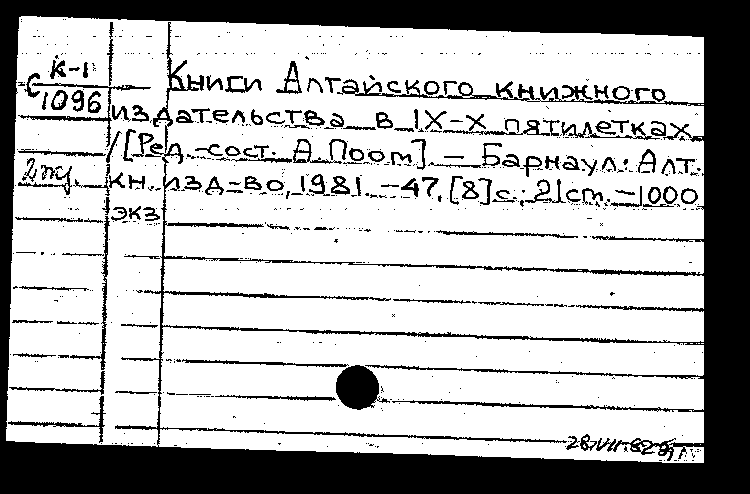 К-1
С
1096
2 экз.
Книги Алтайского книжного
издательства в IX-X пятилетках
/[Ред.-сост. А.Поот]. — Барнаул: Алт.
кн. изд-во, 1981. — 47, [8] с.; 21 cm. — 1000
экз
28.VII.82